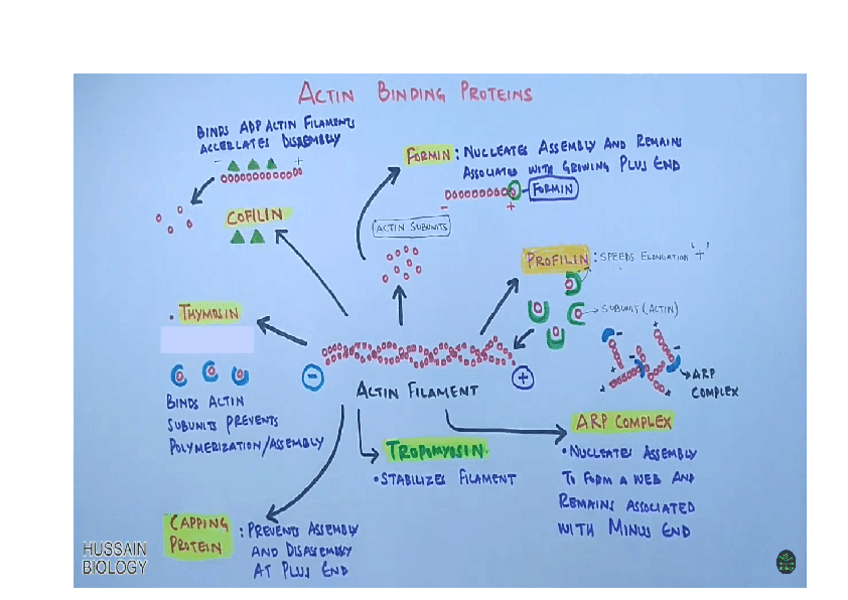 ACTIN BINDING PROTEINS
BINDS ADP ACTIN FILAMENTS
ACCELRATES DISASSEMBLY
- +
COFILIN
FORMIN : NUCLEATES ASSEMBLY AND REMAINS
ASSOCIATED WITH GROWING PLUS END
FORMIN
- +
ACTIN SUBUNITS
PROFILIN : SPEEDS ELONGATION '+'
SUBUNIT (ACTIN)
• THYMOSIN
BINDS ACTIN
SUBUNITS PREVENTS
POLYMERIZATION/ASSEMBLY
- +
ACTIN FILAMENT
ARP
COMPLEX
ARP COMPLEX
• NUCLEATES ASSEMBLY
TO FORM A WEB AND
REMAINS ASSOCIATED
WITH MINUS END
TROPOMYOSIN
• STABILIZES FILAMENT
CAPPING
PROTEIN : PREVENTS ASSEMBLY
AND DISASSEMBLY
AT PLUS END
HUSSAIN
BIOLOGY